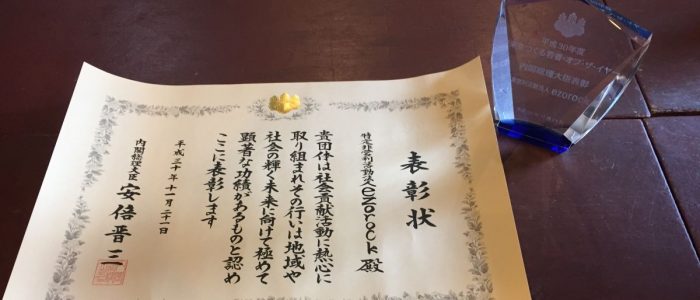 表彰状
特定非営利活動法人ezorock殿
貴団体は社会貢献活動に熱心に
取り組まれその行いは地域や
社会の輝く未来に向けて極めて
顕著な功績があるものと認め
ここに表彰します
平成三十年十一月二十一日
内閣総理大臣 安倍晋三
平成30年度
をつくる若者・オブ・ザ・イヤー
内閣総理大臣表彰
ezorock